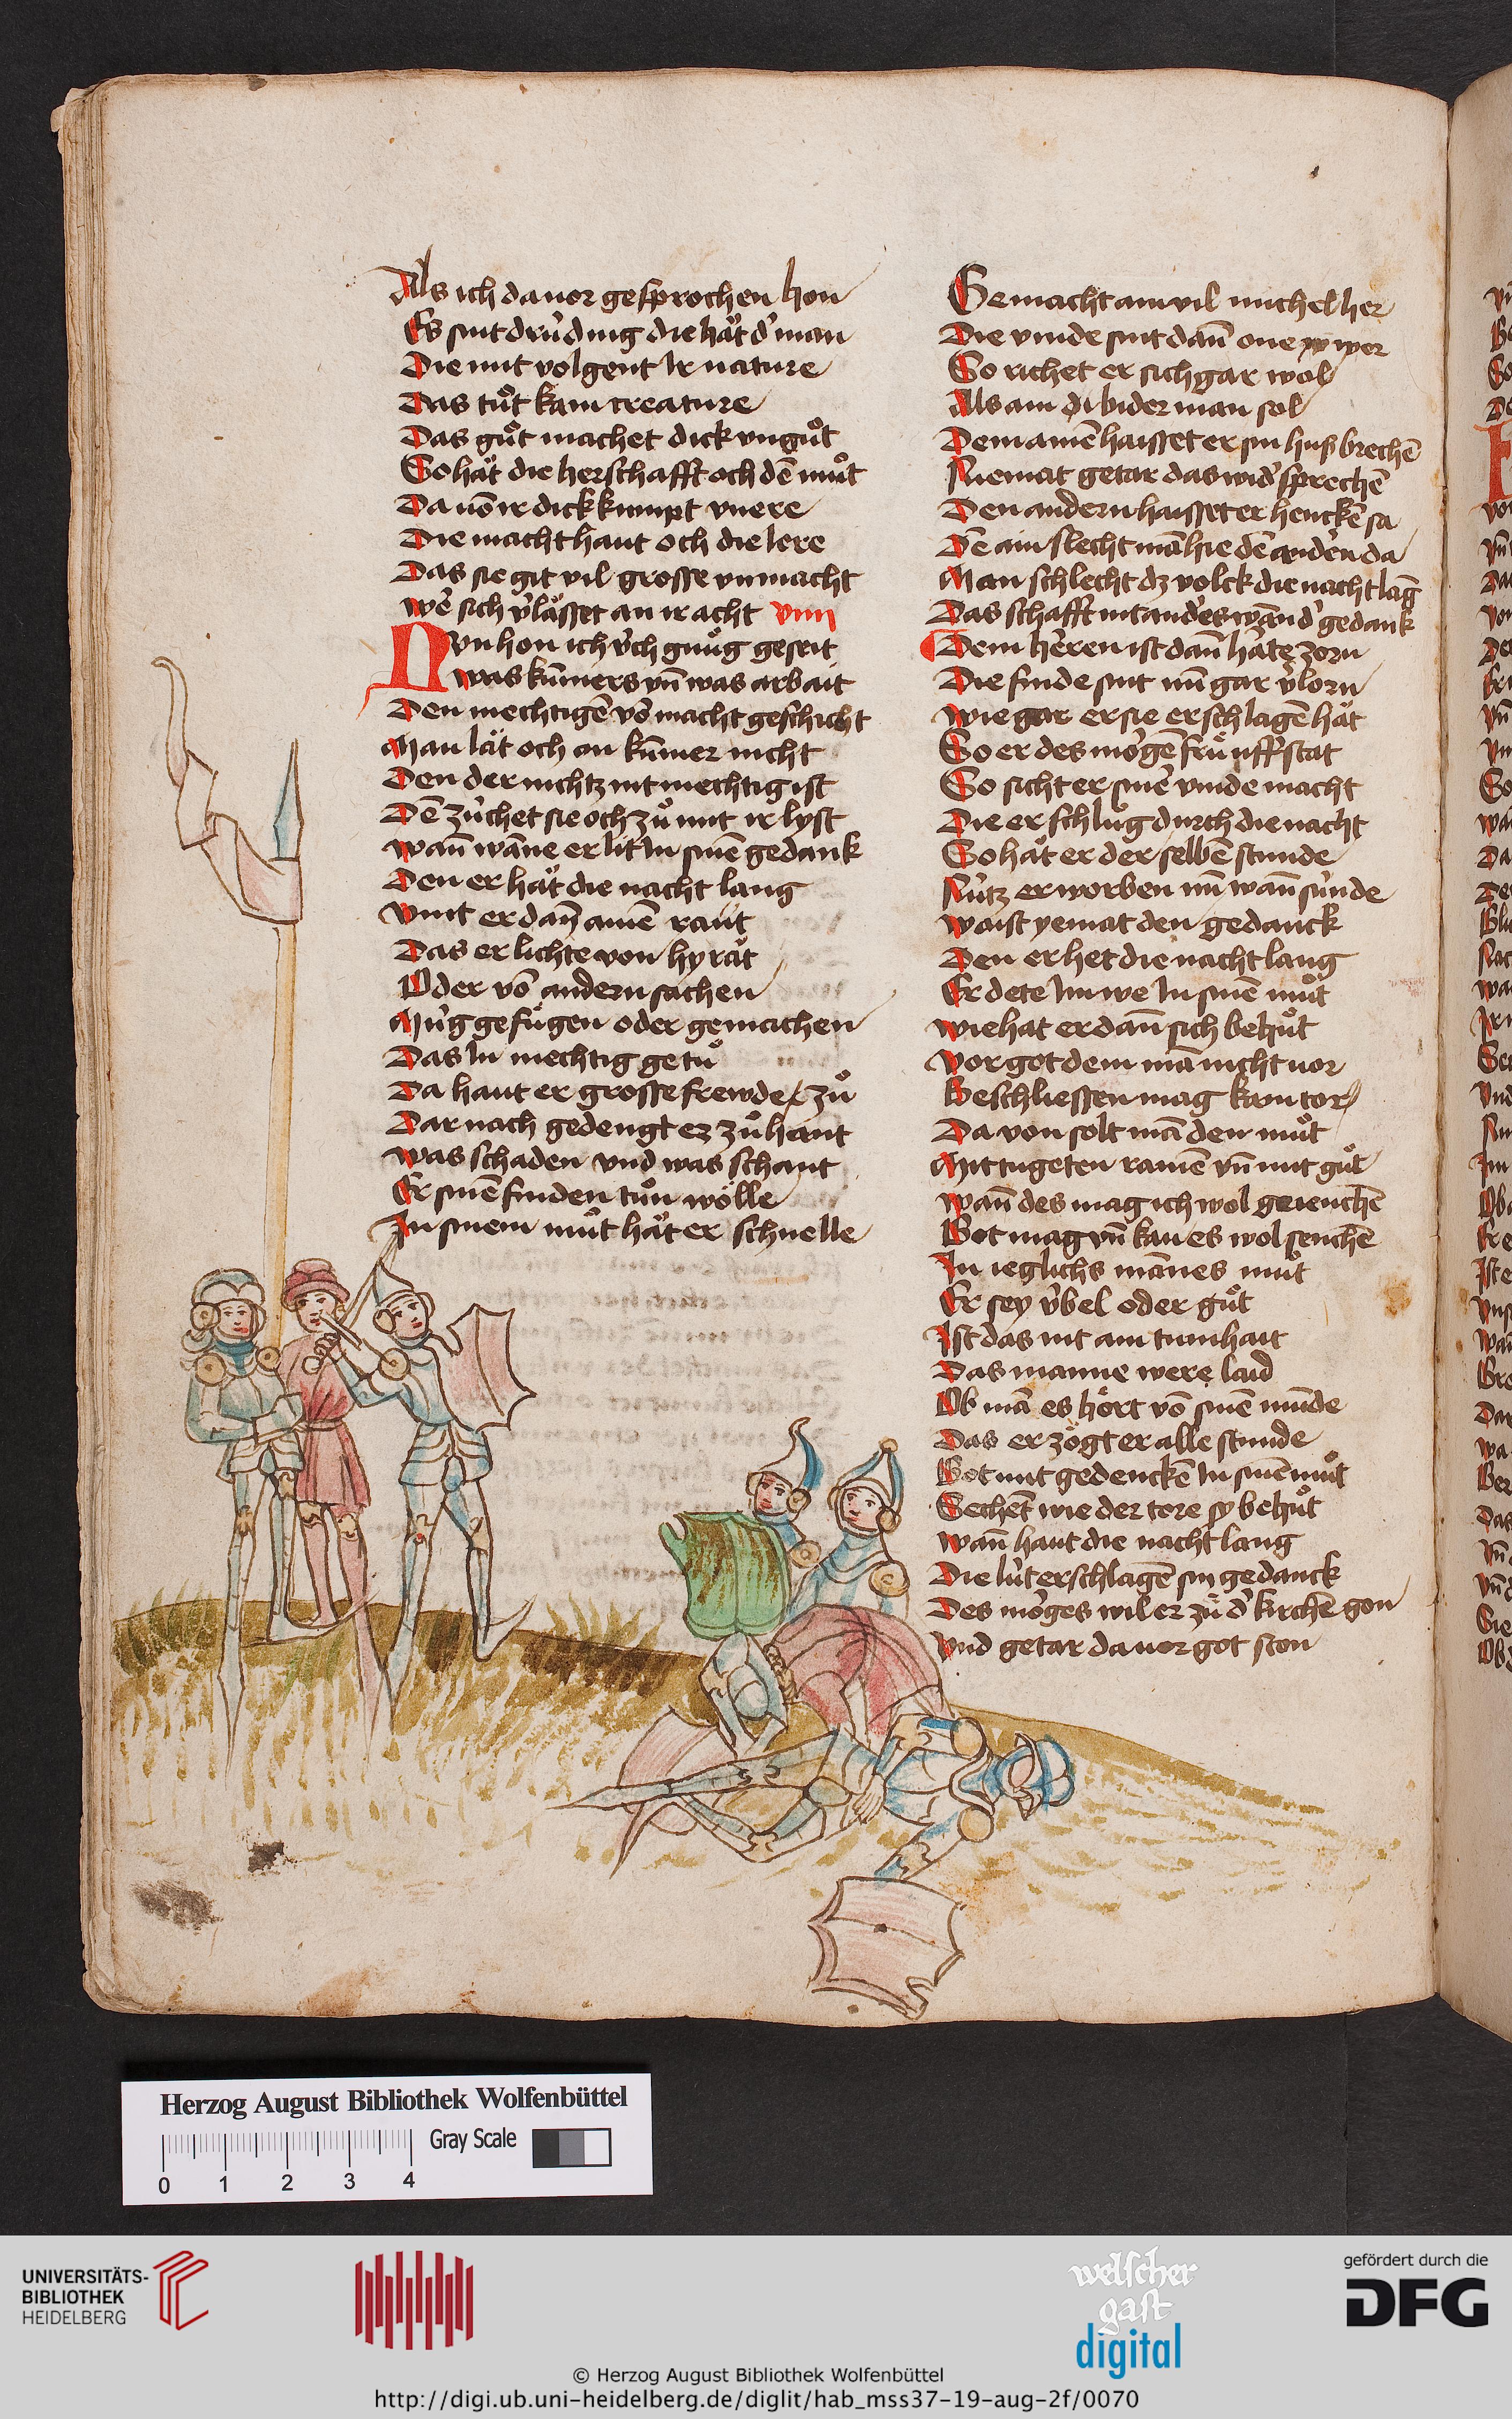 Als ich da uor gesprochen hon
Es sint drú ding die hät d' man
Die mit volgent Ir nature
Das tuͦt kain creature
Das guͦt machet dick vnguͦt
So hät die herschafft och dē muͦt
Da uō ir dick kumpt vnere
Die macht haut och die lere
Das sie git vil grosse vnmacht
wē sich v'lässet an ir acht viiij
Nvn hon ich úch gnuͦg geseit
was kūmers vn̄ was arbait
Den mechtigē vō macht geschicht
Man lät och on kūmer nicht
Den der nichtz nit mechtig ist
Dē zúchet sie och zuͦ mit ir lyst
wan̄ wāne er lit In sinē gedank
Den er hät die nacht lang
vint er dan̄ ainē raut
Das er lichte von hyrät
Oder vō andern sachen
Múg gefuͤgen oder gemachen
Das In mechtig getuͦ
Da haut er grosse frewde zuͦ
Dar nach gedengt ez zuͦ hant
was schaden vnd was schant
Er sinē finden tuͦn wölle
In sinem muͦt hät er schnelle
Gemacht ain vil michel her
Die vinde sint dan̄ one wer
So richet er sich gar wol
Als ain bider man sol
Dem ainē haisset er sin huß brechē
Niemat getar das wid' sprechē
Den andern haisset er henckē sa
Dē ain slecht mā hie dē andēn da
Man schlecht dz volck die nacht lāg
Das schafft nit and'es wān d' gedank
Dem heren ist dan̄ häte zorn
Die finde sint nū gar v'lorn
wie gar er sie erschlagē hät
So er des mo'gē fruͤ uff stat
So sicht er sine' vinde macht
Die er schlug durch die nacht
So hät er der selbē stunde
Nútz erworben nū wan̄ súnde
waist yemat den gedanck
Den er het die nacht lang
Er dete Im we In sinē muͦt
wie hat er dan̄ sich behuͦt
vor got dem mā nicht uor
Beschliessen mag kain tor
Da von solt mā den muͦt
Mit tugeten rainē vn̄ mit guͦt
wan̄ des mag ich wol geienchē
Got mag vn̄ kan es wol senchē
In ieglichs mānes muͦt
Er sey v́bel oder guͦt
Ist das nit ain tumhait
Das manne were laid
Ob mā es hört vō sinē munde
Das er zögt er alle stunde
Got mit gedenckē In sinē muͦt
Sechēt wie der tore sy behuͦt
wan̄ haut die nacht lang
Die lút erschlagē sin gedanck
Des mo'ges wil er zuͦ d' kirchē gon
vnd getar da uor got ston
Herzog August Bibliothek Wolfenbüttel
Gray Scale
0 1 2 3 4
UNIVERSITÄTS-
BIBLIOTHEK
HEIDELBERG
welscher
gast
digital
gefördert durch die
DFG
© Herzog August Bibliothek Wolfenbüttel
http://digi.ub.uni-heidelberg.de/diglit/hab_mss37-19-aug-2f/0070